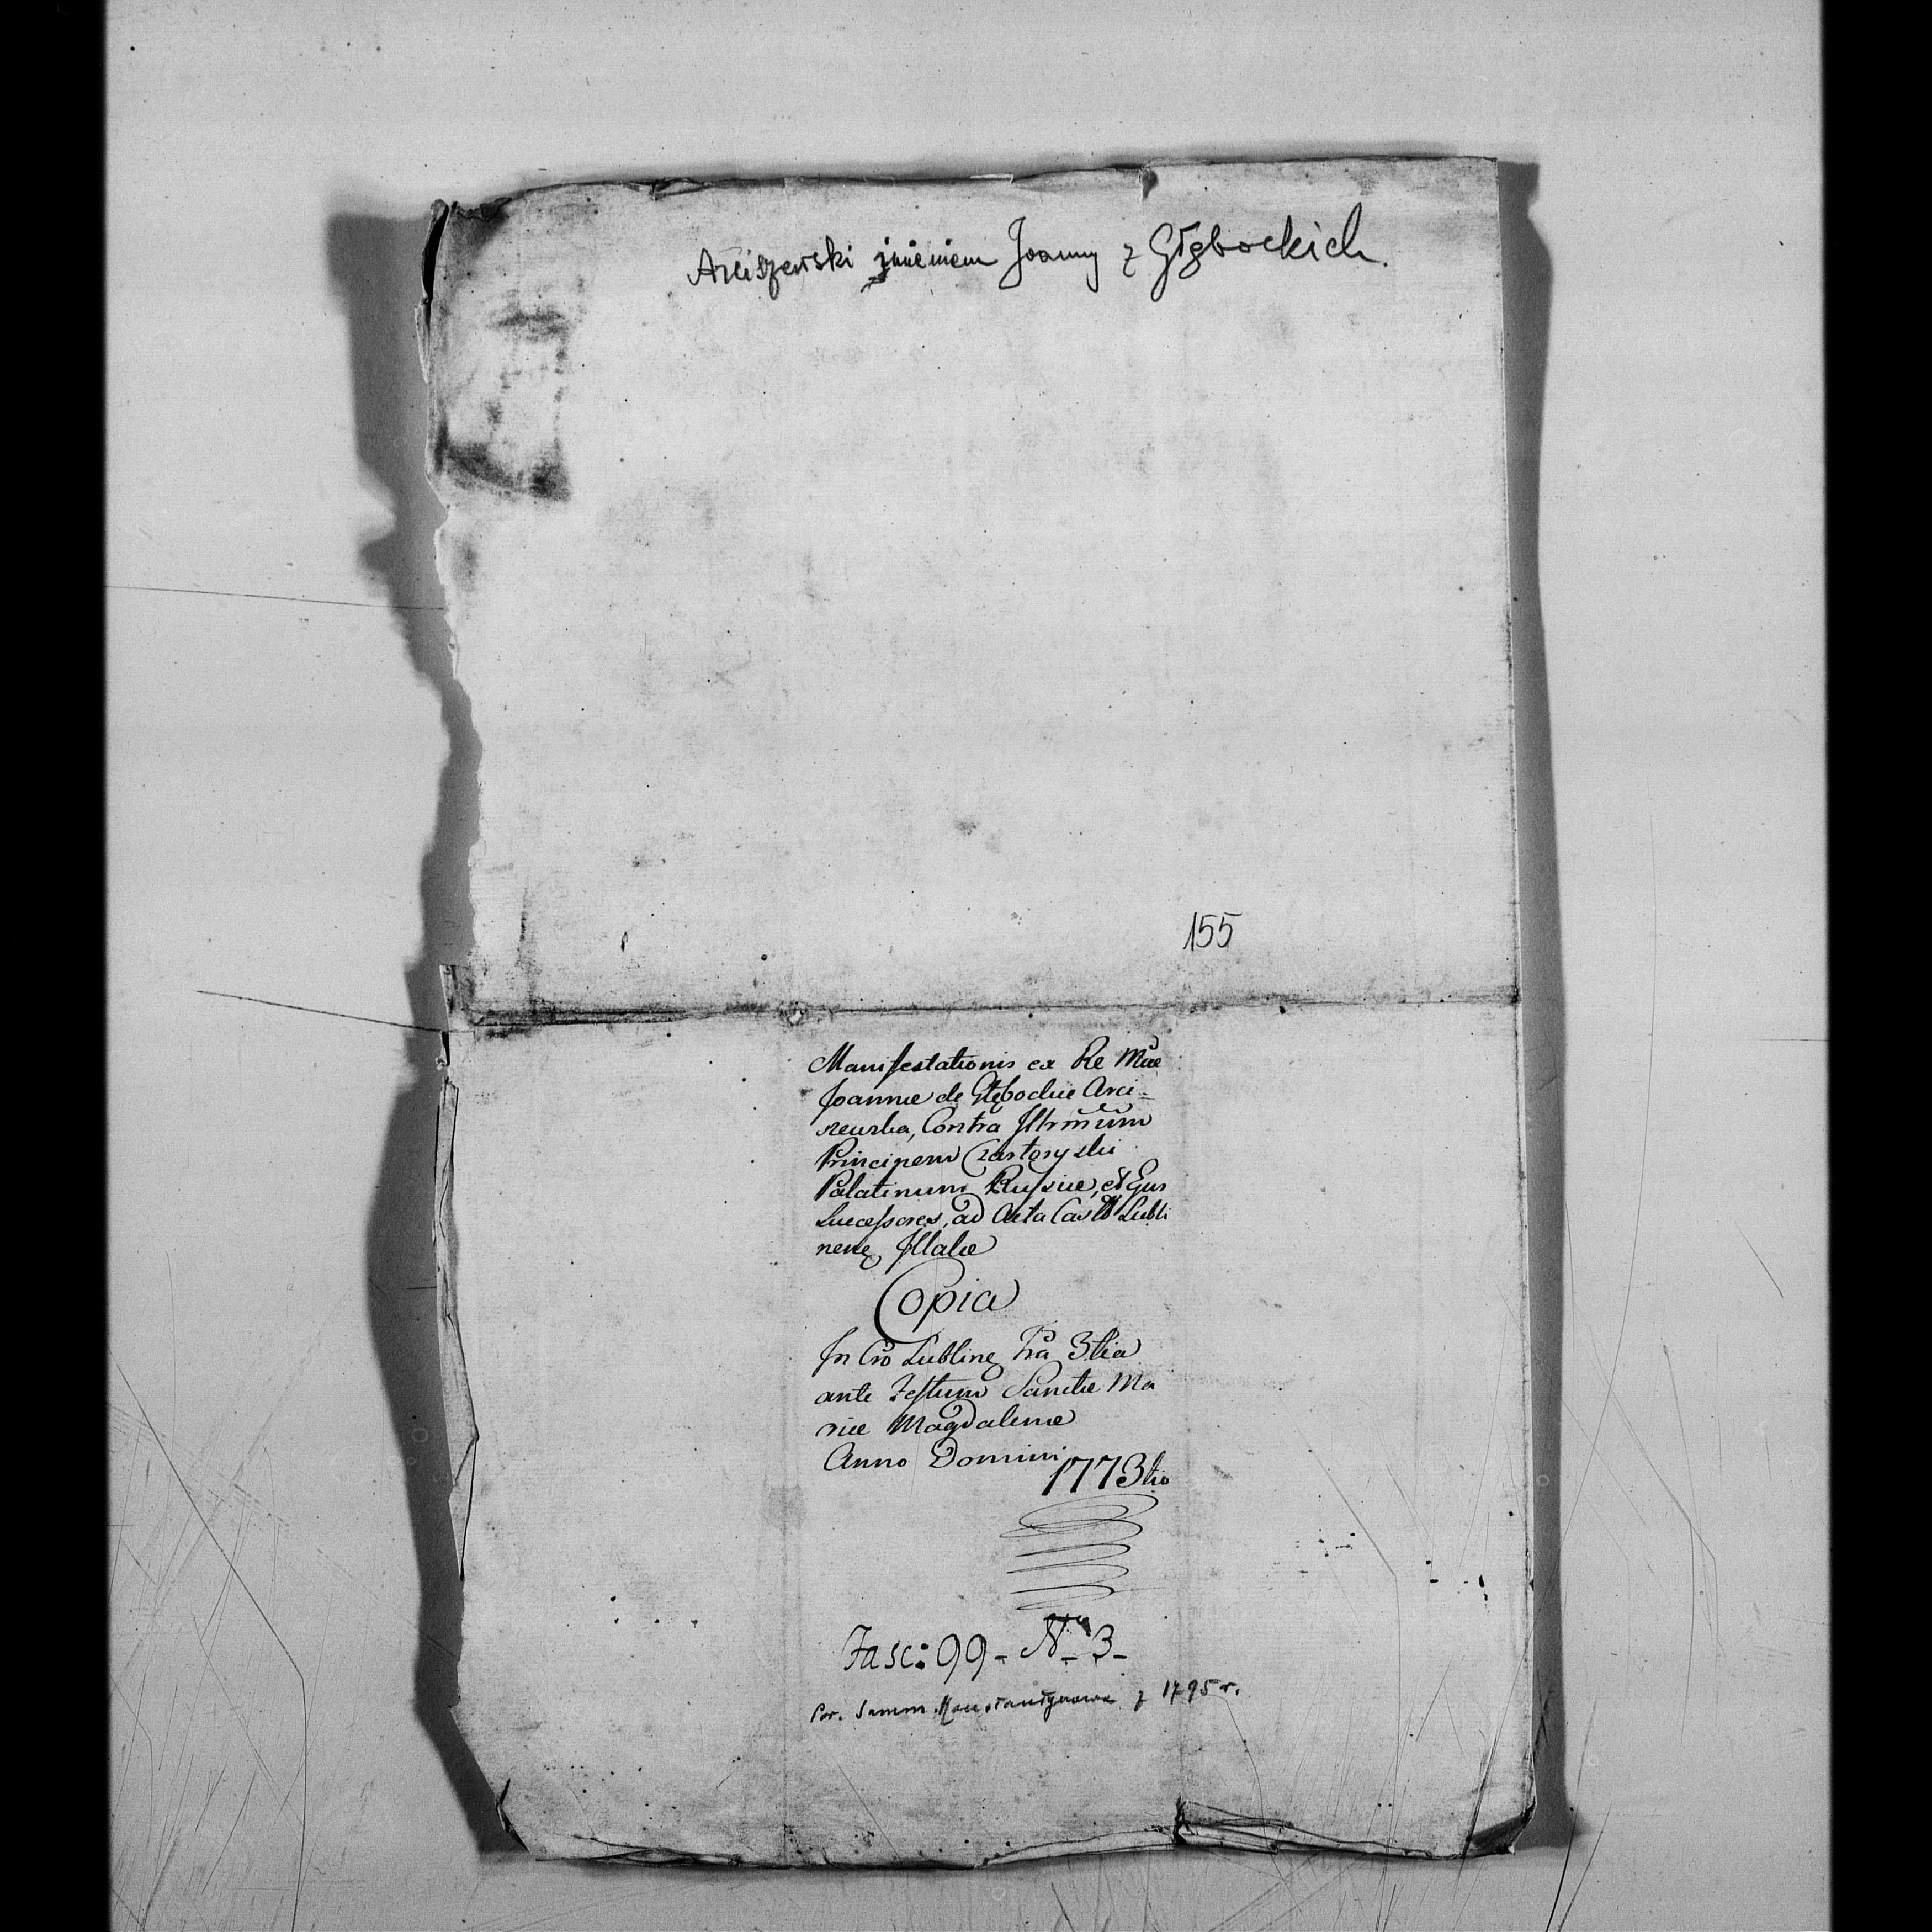 Arciszewski imieniem Joanny z Głębockich.
155
Manifestationis ex Re Mcae
Joannae de Głębockie Arci=
szewska, Contra Illrmum
Principem Czartoryski
Palatinum Russiae, et Ejus
Successores, ad Acta Cast Lubli
nen Illatae
Copia
In Cro Lublinen Fra 3tia
ante Festum Sanctae Ma
riae Magdalenae
Anno Domini
1773tio
Fasc: 99 - No 3 -
Por. Summ. Konstantynowa z 1795 r.